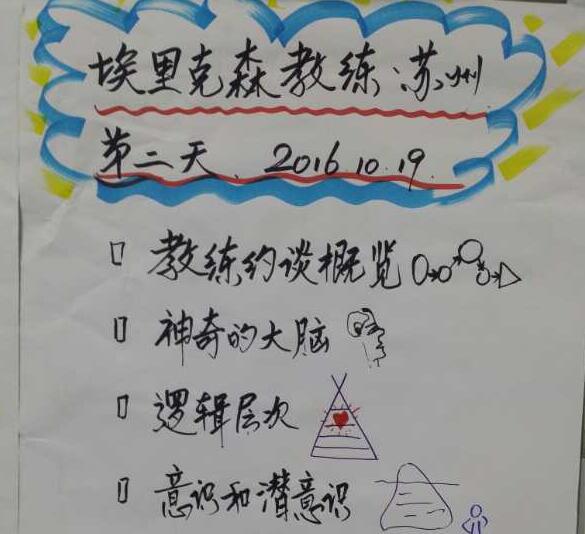 埃里克森教练·苏州
第二天 2016.10.19.
教练约谈概览
神奇的大脑
逻辑层次
意识和潜意识